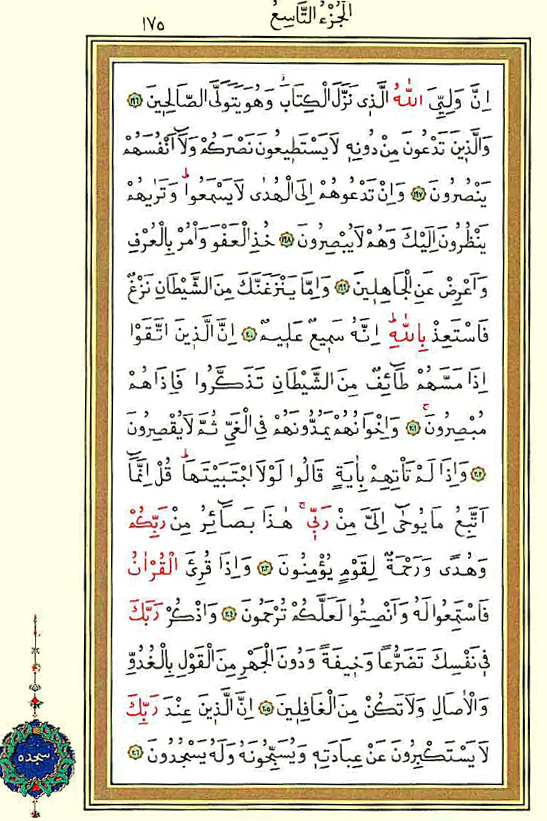 الجزء التاسع
١٧٥
اِنَّ وَلِيِّيَ اللّٰهُ الَّذٖى نَزَّلَ الْكِتَابَ وَهُوَ يَتَوَلَّى الصَّالِحٖينَ ﴿١٩٦﴾
وَالَّذٖينَ تَدْعُونَ مِنْ دُونِهٖ لَا يَسْتَطٖيعُونَ نَصْرَكُمْ وَلَٓا اَنْفُسَهُمْ
يَنْصُرُونَ ﴿١٩٧﴾ وَاِنْ تَدْعُوهُمْ اِلَى الْهُدٰى لَا يَسْمَعُواؕ وَتَرٰيهُمْ
يَنْظُرُونَ اِلَيْكَ وَهُمْ لَا يُبْصِرُونَ ﴿١٩٨﴾ خُذِ الْعَفْوَ وَأْمُرْ بِالْعُرْفِ
وَاَعْرِضْ عَنِ الْجَاهِلٖينَ ﴿١٩٩﴾ وَاِمَّا يَنْزَغَنَّكَ مِنَ الشَّيْطَانِ نَزْغٌ
فَاسْتَعِذْ بِاللّٰهِؕ اِنَّهُ سَمٖيعٌ عَلٖيمٌ ﴿٢٠٠﴾ اِنَّ الَّذٖينَ اتَّقَوْا
اِذَا مَسَّهُمْ طَٓائِفٌ مِنَ الشَّيْطَانِ تَذَكَّرُوا فَاِذَا هُمْ
مُبْصِرُونَۚ ﴿٢٠١﴾ وَاِخْوَانُهُمْ يَمُدُّونَهُمْ فِى الْغَىِّ ثُمَّ لَا يُقْصِرُونَ
﴿٢٠٢﴾ وَاِذَا لَمْ تَأْتِهِمْ بِاٰيَةٍ قَالُوا لَوْلَا اجْتَبَيْتَهَاؕ قُلْ اِنَّمَٓا
اَتَّبِعُ مَا يُوحٰٓى اِلَىَّ مِنْ رَبّٖىۚ هٰذَا بَصَٓائِرُ مِنْ رَبِّكُمْ
وَهُدًى وَرَحْمَةٌ لِقَوْمٍ يُؤْمِنُونَ ﴿٢٠٣﴾ وَاِذَا قُرِئَ الْقُرْاٰنُ
فَاسْتَمِعُوا لَهُ وَاَنْصِتُوا لَعَلَّكُمْ تُرْحَمُونَ ﴿٢٠٤﴾ وَاذْكُرْ رَبَّكَ
فٖى نَفْسِكَ تَضَرُّعًا وَخٖيفَةً وَدُونَ الْجَهْرِ مِنَ الْقَوْلِ بِالْغُدُوِّ
وَالْاٰصَالِ وَلَا تَكُنْ مِنَ الْغَافِلٖينَ ﴿٢٠٥﴾ اِنَّ الَّذٖينَ عِنْدَ رَبِّكَ
لَا يَسْتَكْبِرُونَ عَنْ عِبَادَتِهٖ وَيُسَبِّحُونَهُ وَلَهُ يَسْجُدُونَ ﴿٢٠٦﴾
سجده